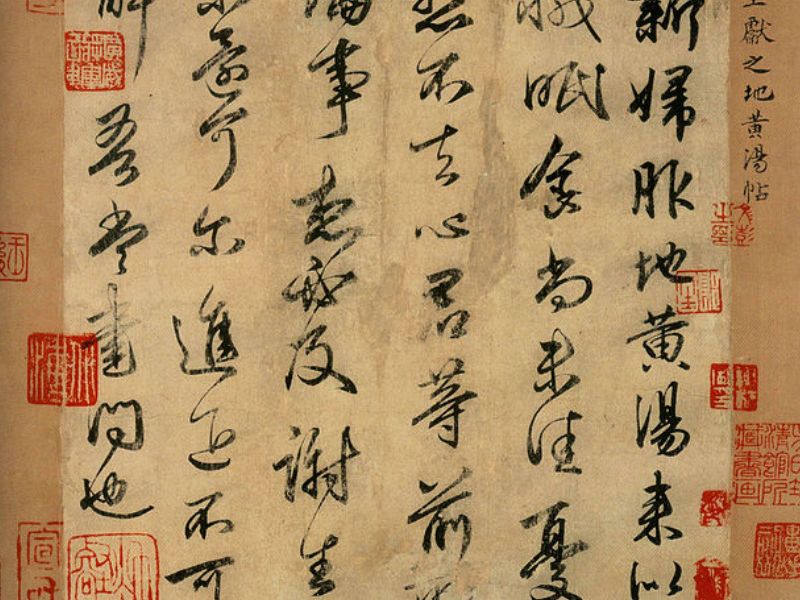 王獻之地黃湯帖
新婦服地黃湯來似
減眠食尚未佳憂
懸不去心君等前所
論事想必及謝生
未還可爾進退不可
解吾當書問也